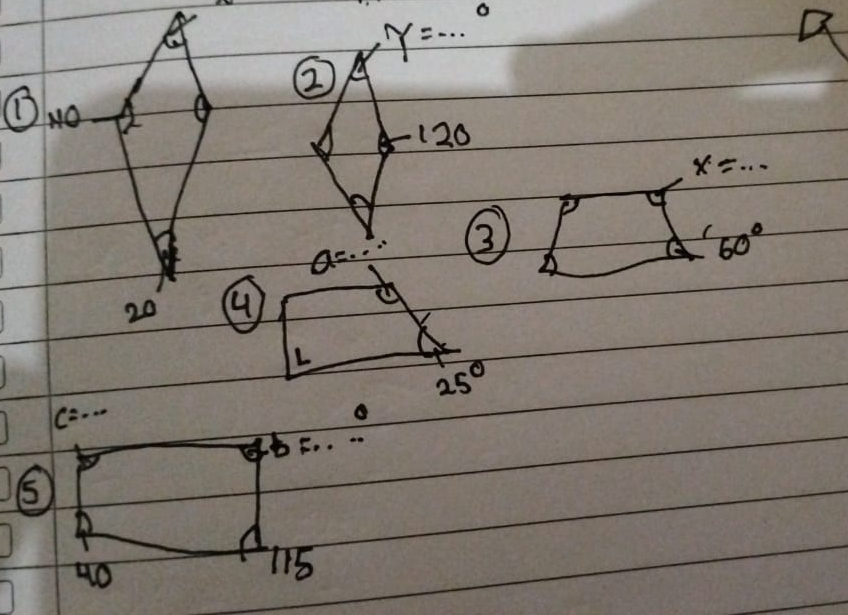 ① 110
20
② γ = ...°
120
③ x = ...
60°
④ a = ....
25°
⑤ c = ...
b = ....°
40
115